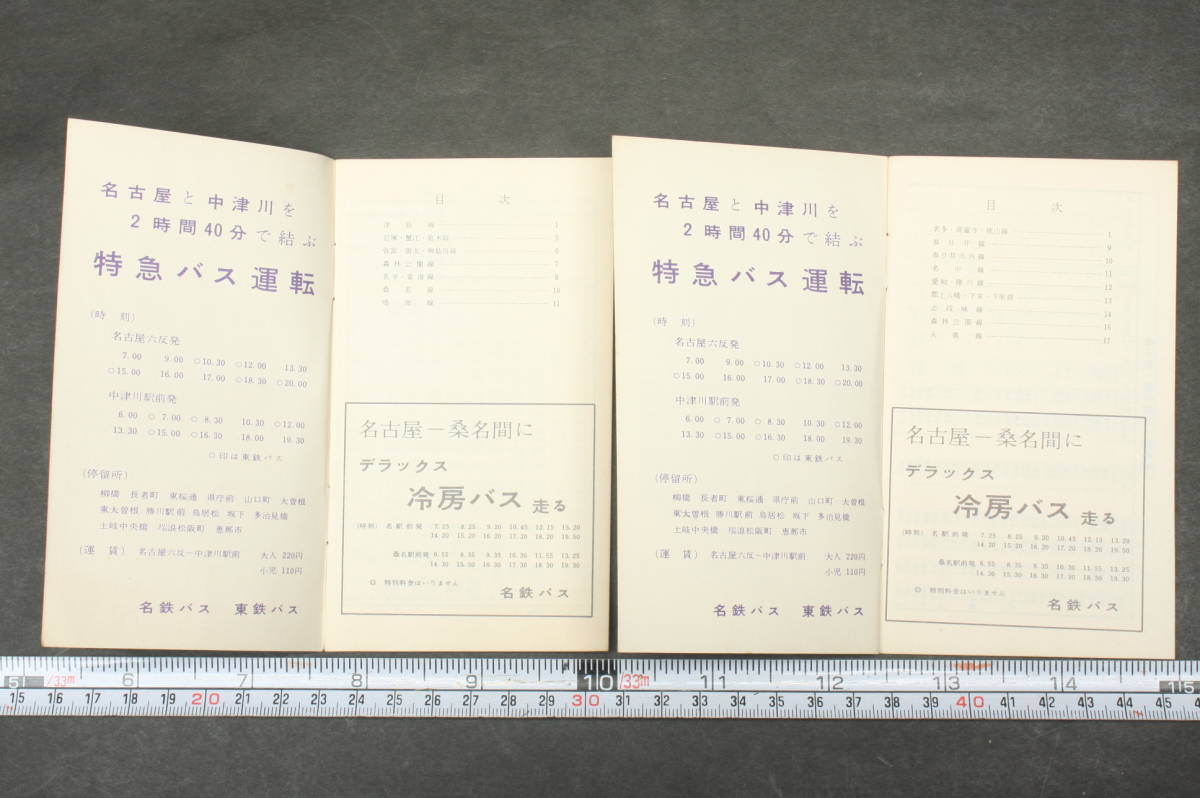 名古屋と中津川を
2時間40分で結ぶ
特急バス運転
(時 刻)
名古屋六反発
7.00 9.00 ○10.30 ○12.00 13.30
○15.00 16.00 17.00 ○18.30 ○20.00
中津川駅前発
6.00 ○ 7.00 ○ 8.30 10.30 ○12.00
13.30 ○15.00 ○16.30 18.00 19.30
○印は東鉄バス
(停留所)
柳橋 長者町 東桜通 県庁前 山口町 大曽根
東太曽根 勝川駅前 鳥居松 坂下 多治見橋
土岐中央橋 瑞浪松阪町 恵那市
(運 賃) 名古屋六反−中津川駅前 大人 220円
小児 110円
名鉄バス 東鉄バス
目 次
津島線 1
6
森林公園線 7
8
桑名線 10
11
名古屋−桑名間に
デラックス
冷房バス 走る
(時刻) 名駅前発 7.25 8.25 9.20 10.45 12.15 13.20
14.20 15.20 16.20 17.20 18.20 19.50
桑名駅前発 6.55 8.35 9.35 10.36 11.55 13.25
14.30 15.30 16.30 17.30 18.30 19.30
◎ 特別料金はいりません
名鉄バス
名古屋と中津川を
2時間40分で結ぶ
特急バス運転
(時 刻)
名古屋六反発
7.00 9.00 ○10.30 ○12.00 13.30
○15.00 16.00 17.00 ○18.30 ○20.00
中津川駅前発
6.00 ○ 7.00 ○ 8.30 10.30 ○12.00
13.30 ○15.00 ○16.30 18.00 19.30
○印は東鉄バス
(停留所)
柳橋 長者町 東桜通 県庁前 山口町 大曽根
東太曽根 勝川駅前 鳥居松 坂下 多治見橋
土岐中央橋 瑞浪松阪町 恵那市
(運 賃) 名古屋六反−中津川駅前 大人 220円
小児 110円
名鉄バス 東鉄バス
目 次
1
春日井線 9
10
11
12
13
14
森林公園線 16
17
名古屋−桑名間に
デラックス
冷房バス 走る
(時刻) 名駅前発 7.25 8.25 9.20 10.45 12.15 13.20
14.20 15.20 16.20 17.20 18.20 19.50
桑名駅前発 6.55 8.35 9.35 10.36 11.55 13.25
14.30 15.30 16.30 17.30 18.30 19.30
◎ 特別料金はいりません
名鉄バス
51 /33m 6 7 8 9 10 /33m 11 12 13 14 115
15 16 17 18 19 20 21 22 23 24 25 26 27 28 29 30 31 32 33 34 35 36 37 38 39 40 41 42 43 44 45